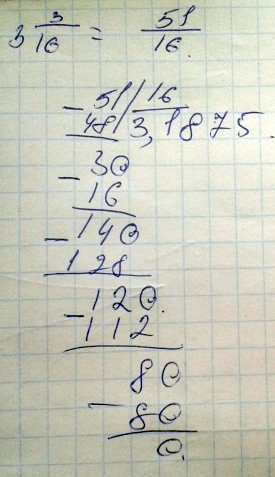 3 3/16 = 51/16
- 51 | 16
48 | 3,1875.
- 30
16
- 140
128
- 120.
112
80
- 80
0.